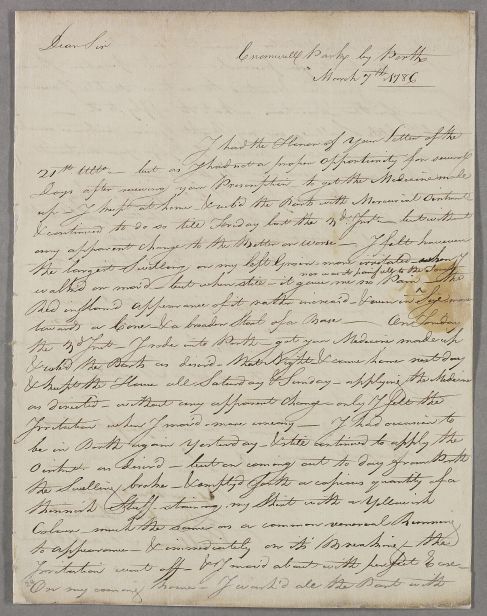 Dear Sir
Cromwell Park by Perth
March 7th 1786
I had the Honor of your Letter of the
21st Ulto — but as I had not a proper opportunity for several
days after receiving your Prescription — to get the Medicine made
up — I kept at home & rub'd the Parts with Mercurial Ointment
& continued to do so till Sunday last the Inst — but without
any apparent change to the Better or worse — I felt however
the largest Swelling on my left Groin more irritated when I
walked or mov'd — but when still — it gave me no Pain
nor was it painfull to the Touch
The
Red inflamed appearance of it rather increas'd & came in more
towards a Cone — & a broader Start of a Base — On Sunday
the 3d Inst — I rode into Perth — got your Medicine made up
& rub'd the Parts as desir'd — that Night & came home next day
& kept the House all Saturday & Sunday — applying the Medicine
as directed — without any apparent Change — only I felt the
Irritation when I mov'd more uneasy — I had occasion to
be in Perth again Yesterday — & still continued to apply the
Ointmt as desir'd — but on coming out to day from Perth
the Swelling broke — & emptyd forth a copious quantity of a
thinnish Stuff — staining my Shirt with a Yellowish
Colour — much the same as a common venereal Running
to appearance — & immediately on its Breaking the
Irritation went off & I mov'd about with perfect Ease —
On my coming home — I wash'd all the Parts with